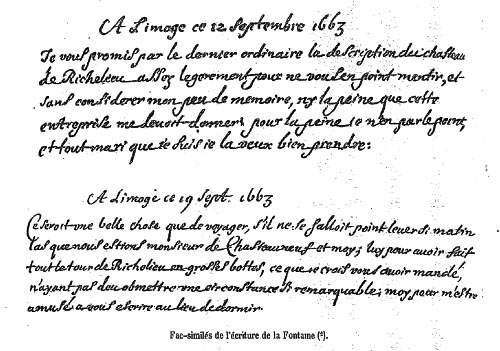 A Limoge ce 12 septembre 1663
Je vous promis par le dernier ordinaire la description du chasteau
de Richelieu assez legerement pour ne vous en point mentir, et
sans considerer mon peu de memoire, ny la peine que cette
entreprise me devoit donner; pour la peine je n'en parle point,
et tout mari que je suis je la veux bien prendre:
A Limoge ce 19 sept. 1663
Ce seroit une belle chose que de voyager, s'il ne se falloit point lever si matin
las que nous estions monsieur de Chasteauneuf et moy; luy pour avoir fait
tout le tour de Richelieu en grosses bottes, ce que je crois vous avoir mandé,
n'ayant pas deu obmettre une circonstance si remarquable; moy pour m'estre
amusé a vous escrire au lieu de dormir.
Fac-similés de l'écriture de la Fontaine (²).